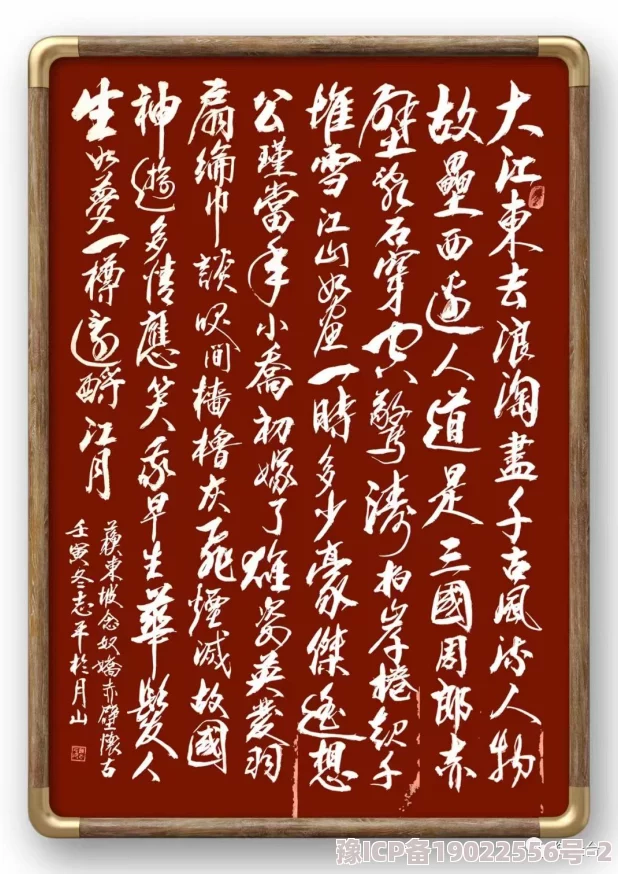 大江東去浪淘盡千古風流人物
故壘西邊人道是三國周郎赤
壁亂石穿空驚濤拍岸捲起千
堆雪江山如畫一時多少豪傑遙想
公瑾當年小喬初嫁了雄姿英發羽
扇綸巾談笑間檣櫓灰飛煙滅故國
神遊多情應笑我早生華髮人
生如夢一樽還酹江月
蘇東坡念奴嬌赤壁懷古
壬寅冬志平於月山
豫ICP备19022556号-2